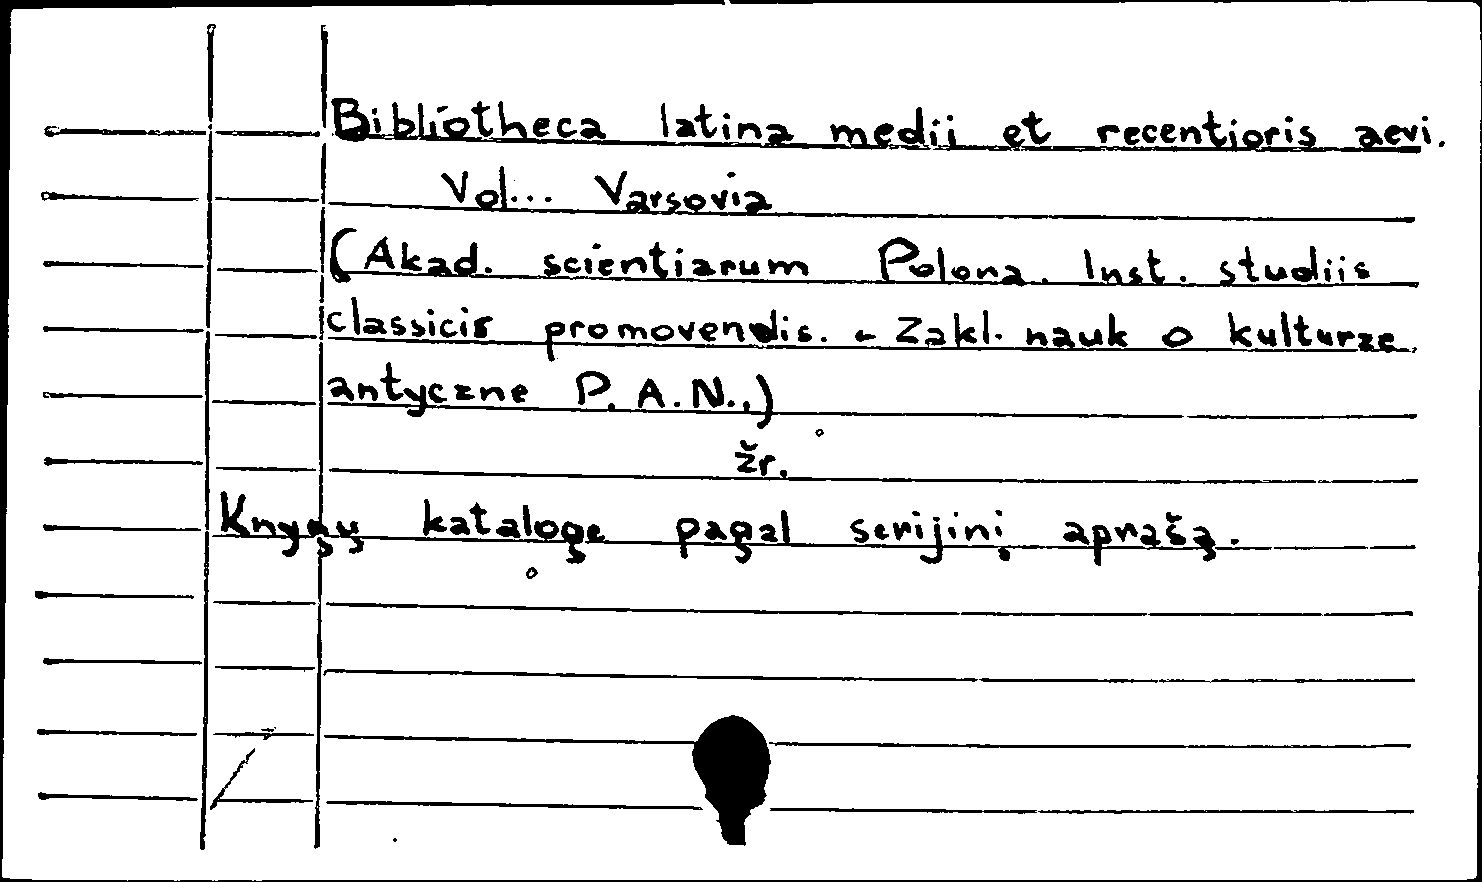 Bibliotheca latina medii et recentioris aevi.
Vol... Varsovia
(Akad. scientiarum Polona. Inst. studiis
classicis promovendis. - Zakl. nauk o kulturze
antyczne P.A.N..)
žr.
Knygų kataloge pagal serijinį aprašą.